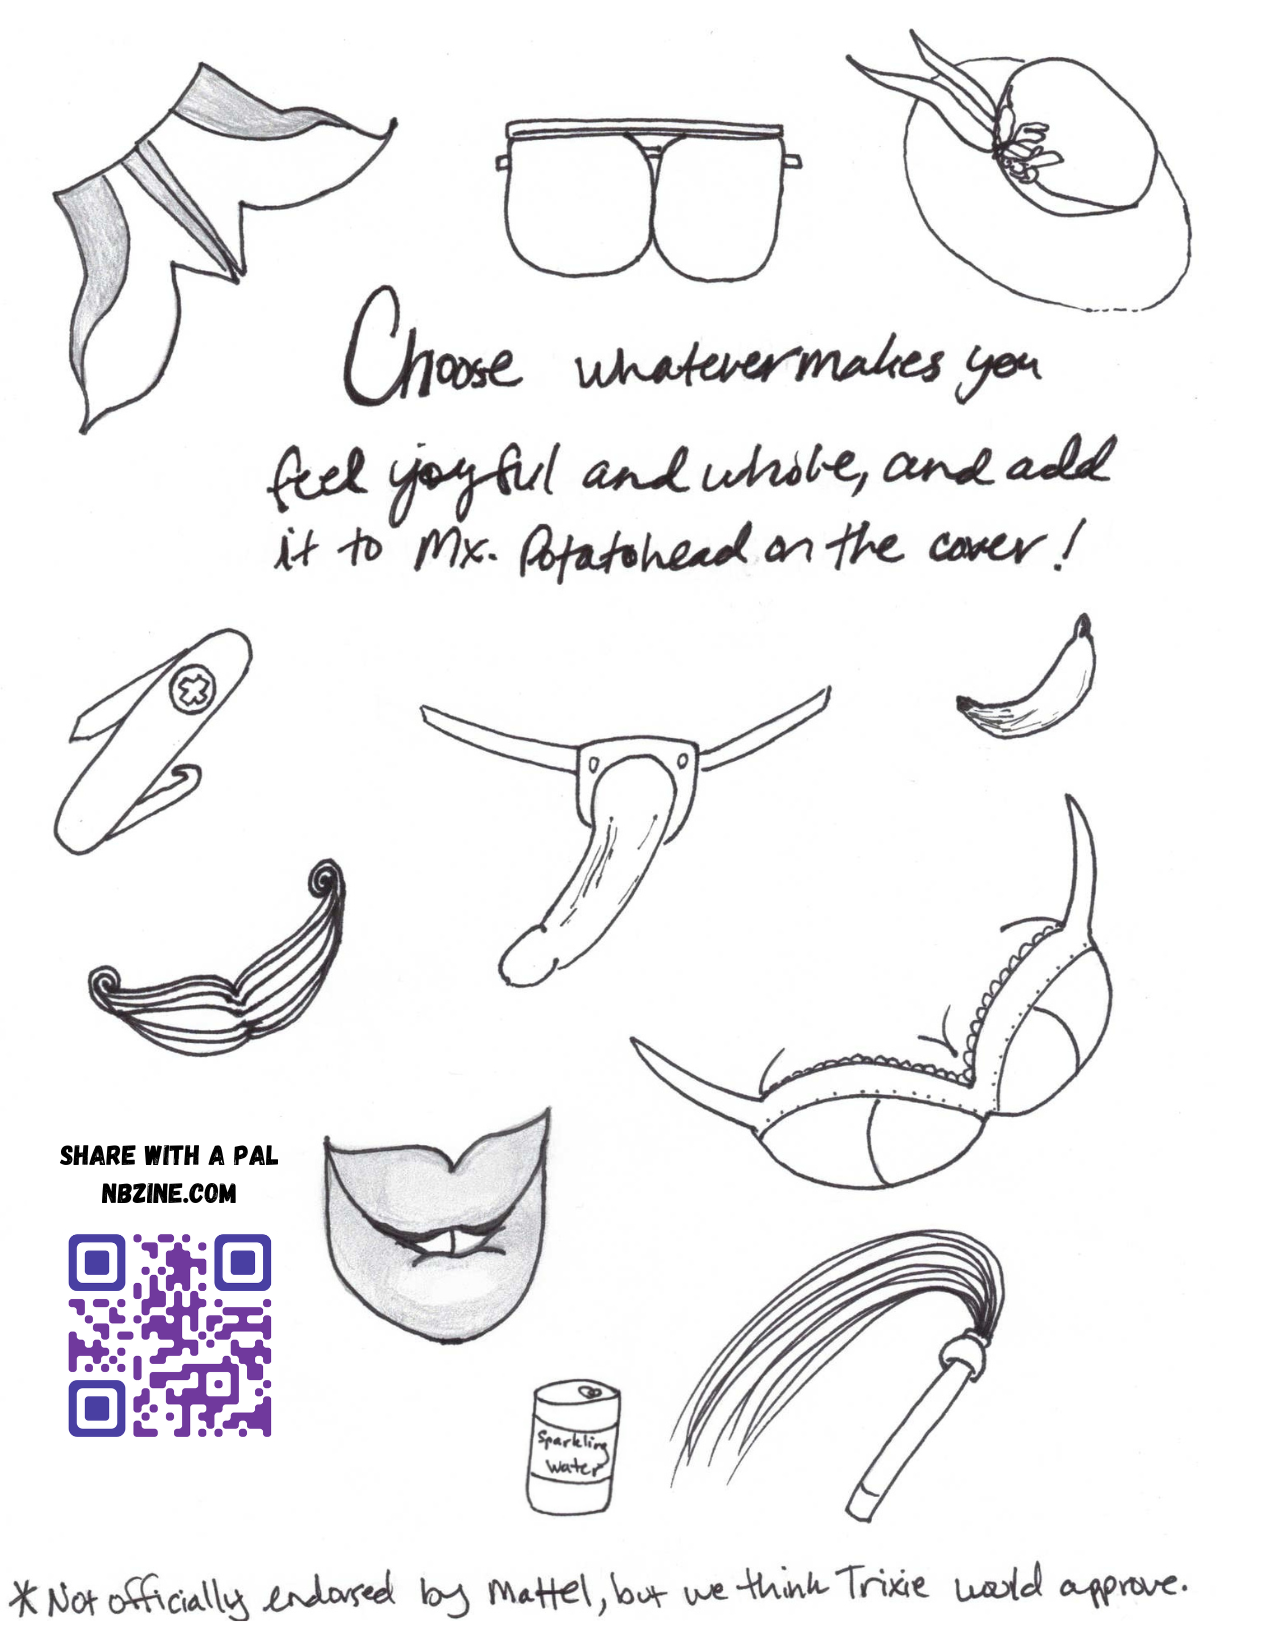 Choose whatever makes you
feel joyful and whole, and add
it to Mx. Potatohead on the cover!
SHARE WITH A PAL
NBZINE.COM
Sparkling
Water
*Not officially endorsed by Mattel, but we think Trixie would approve.